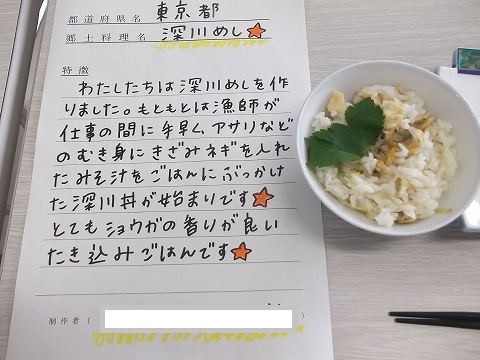 都道府県名 東京都
郷土料理名 深川めし
特徴
わたしたちは深川めしを作
りました。もともとは漁師が
仕事の間に手早く、アサリなど
のむき身にきざみネギを入れ
たみそ汁をごはんにぶっかけ
た深川丼が始まりです
とてもショウガの香りが良い
たき込みごはんです
制作者(